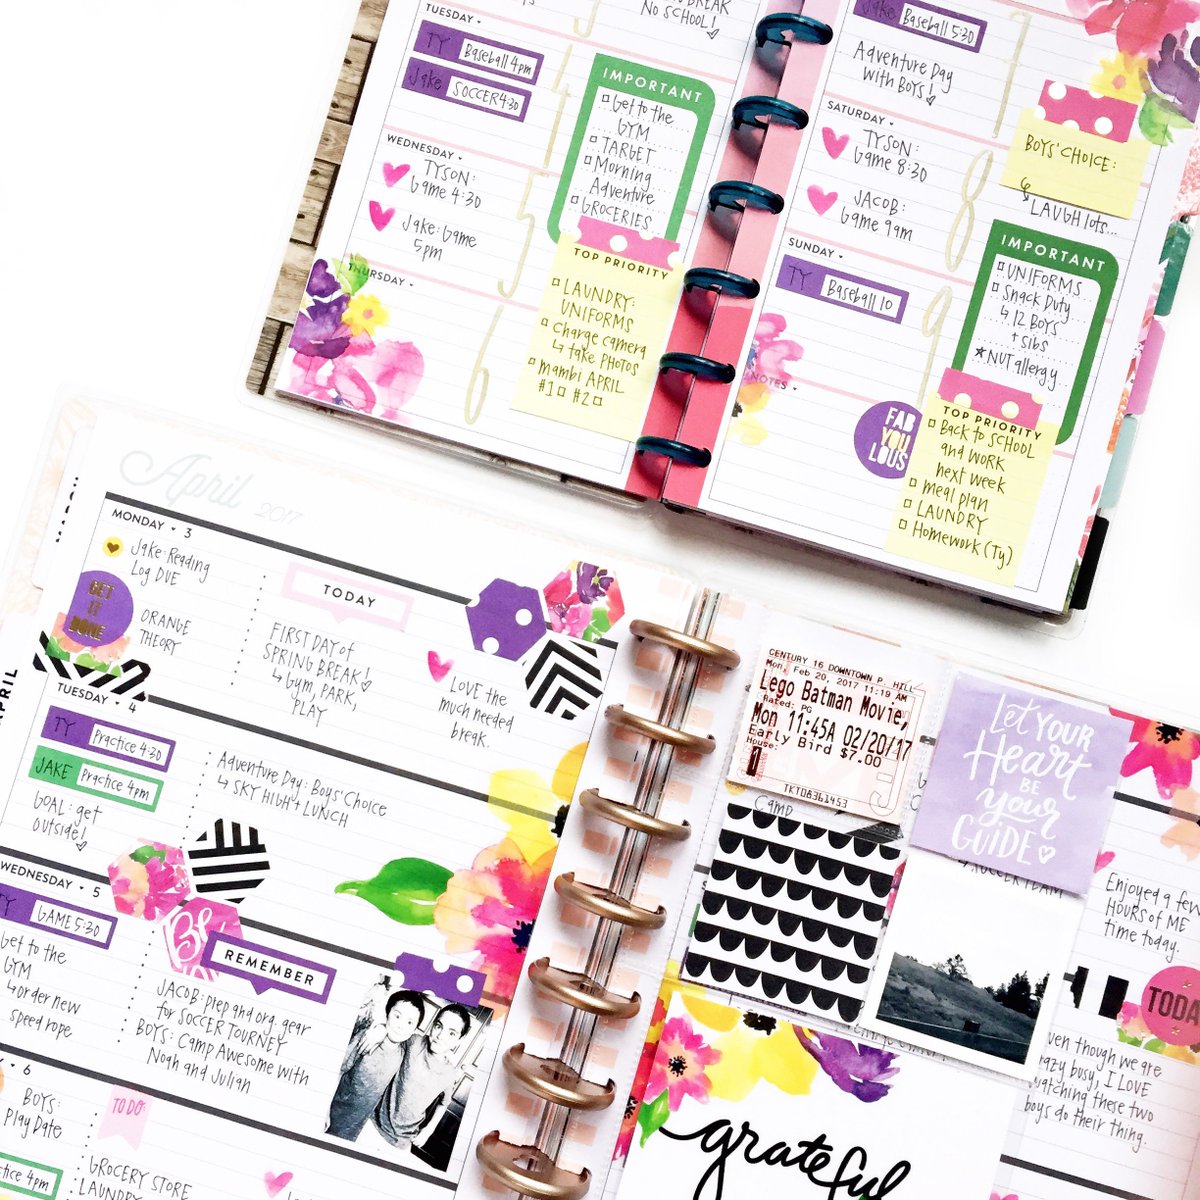 BREAK
NO SCHOOL!
TUESDAY
TY Baseball 4pm
Jake SOCCER 4:30
WEDNESDAY
TYSON:
Game 4:30
Jake: Game
5pm
THURSDAY
5
6
IMPORTANT
Get to the
GYM
TARGET
Morning
Adventure
GROCERIES
TOP PRIORITY
LAUNDRY:
UNIFORMS
Charge camera
↳ take PHOTOS
mambi APRIL
#1 #2
Jake Baseball 5:30
Adventure Day
with BOYS!
7
SATURDAY
TYSON:
Game 8:30
JACOB:
Game 9am
8
SUNDAY
TY Baseball 10
9
NOTES
FAB
YOU
LOUS
BOYS' CHOICE:
↳ LAUGH lots...
IMPORTANT
UNIFORMS
Snack Duty
↳ 12 BOYS
+ sibs
*NUT allergy
TOP PRIORITY
Back to SCHOOL
and WORK
next week
meal plan
LAUNDRY
Homework (Ty)
MARCH
APRIL
April 2017
MONDAY 3
Jake: Reading
Log DUE
GET
IT
DONE
ORANGE
THEORY
TODAY
FIRST DAY of
SPRING BREAK!
↳ Gym, PARK,
PLAY
LOVE the
much needed
break.
TUESDAY 4
TY Practice 4:30
JAKE Practice 4pm
GOAL: get
outside!
Adventure Day: Boys' Choice
↳ SKY HIGH + LUNCH
WEDNESDAY 5
TY GAME 5:30
Get to the
GYM
↳ order new
speed rope
REMEMBER
JACOB: prep and org. gear
for SOCCER TOURNEY
BOYS: Camp Awesome with
Noah and Julian
6
BOYS:
Play Date
Practice 4pm
TO DO:
GROCERY STORE
LAUNDRY
CENTURY 16 DOWNTOWN P. HILL
Mon, Feb 20, 2017 11:19 AM
Lego Batman Movie,
Rated: PG
Mon 11:45A 02/20/17
Early Bird $7.00
House:
1
TKT08361453
Camp
LET YOUR
Heart
BE
your
GUIDE
SOCCER TEAM
Enjoyed a few
HOURS of ME
time today.
TODA
even though we are
crazy busy, I LOVE
watching these two
boys do their thing.
grateful